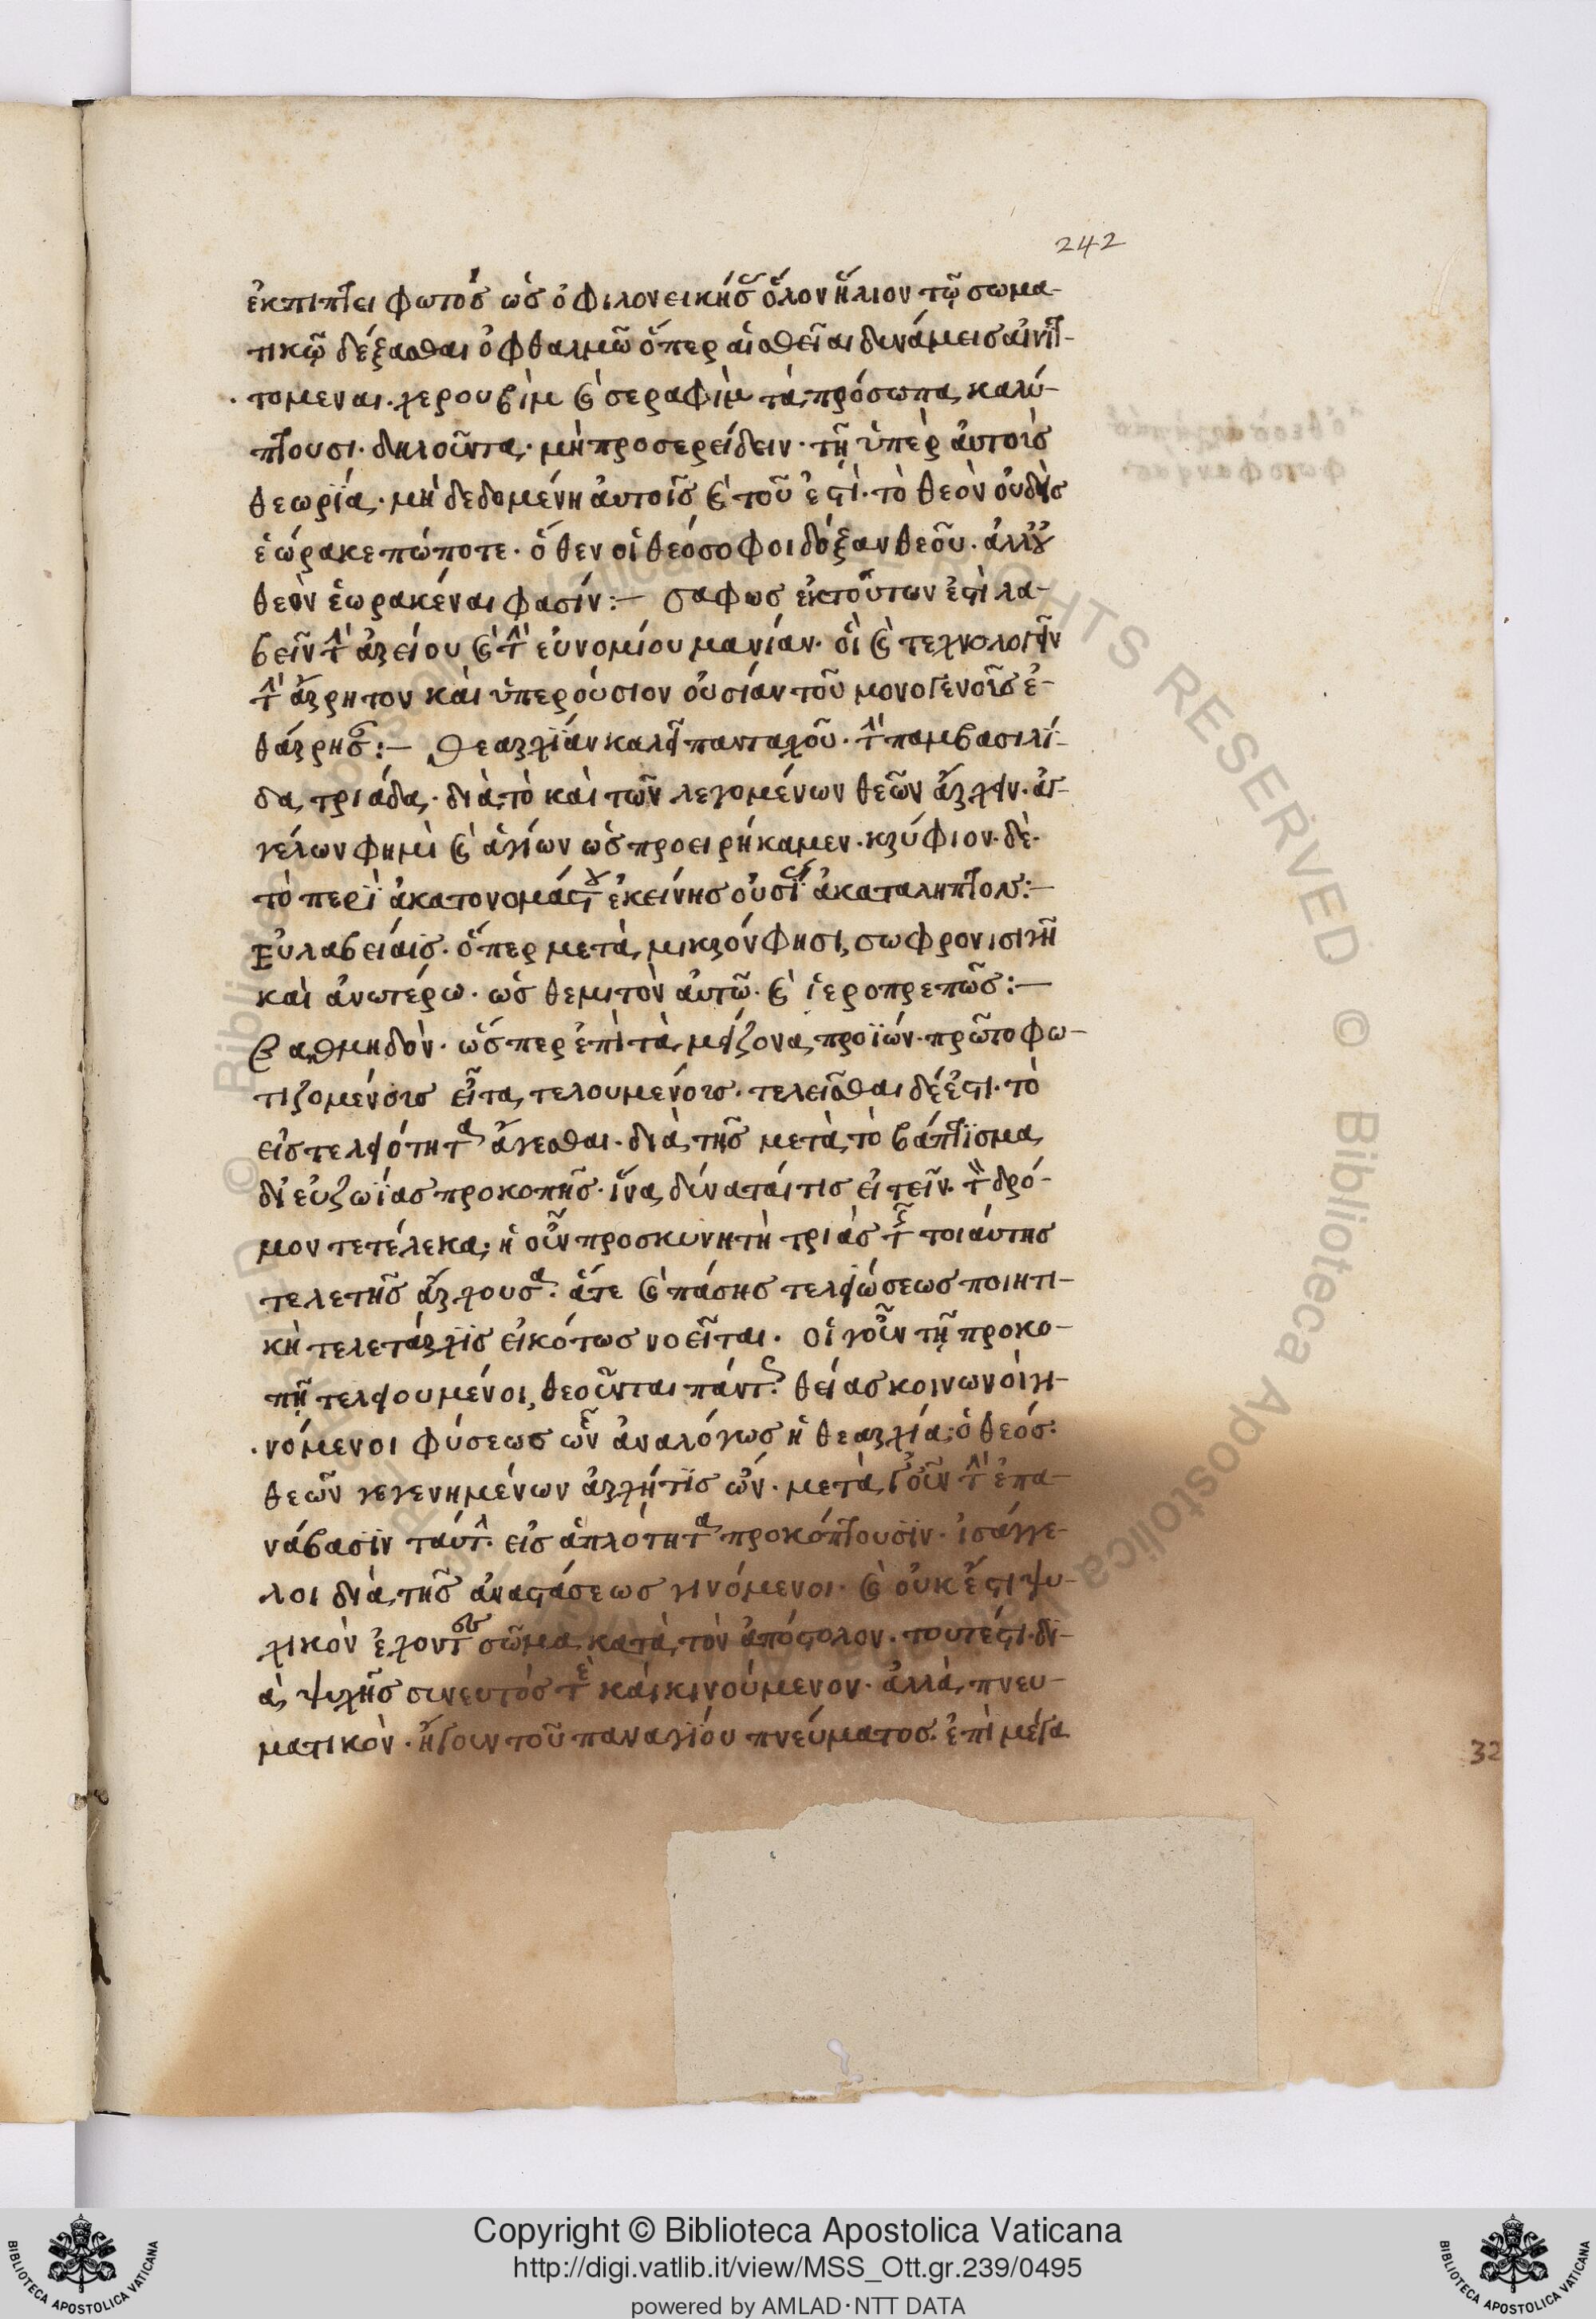 242
ἐκπίπτει φωτός ὡς ὁ φιλονεικήσ ὅλον ἥλιον τῷ σωμα-
τικῷ δέξασθαι ὀφθαλμῶ ὅπερ αἱ θεῖαι δυνάμεις αἰνιτ-
τομεναι. χερουβὶμ καὶ σεραφὶμ τὰ πρόσωπα καλύ-
πτουσι. δηλοῦντα. μὴ προσερείδειν. τῆ ὑπὲρ αὐτοὺς
θεωρία. μὴ δεδομένη αὐτοῖς καὶ τοῦ ἐστὶ. τὸ θεὸν οὐδεὶς
ἑώρακε πώποτε. ὅθεν οἱ θεόσοφοι δόξαν θεοῦ. ἀλλ' οὐ
θεὸν ἑωρακέναι φασίν:— σαφως ἐκ τούτων ἐστὶ λα-
βεῖν τὴν ἀρείου καὶ τὴν εὐνομίου μανίαν. οἳ καὶ τεχνολογεῖν
τὴν ἄρρητον καὶ ὑπερούσιον οὐσίαν τοῦ μονογενοῦς ἐ-
θάρρησαν:— Θεαρχίαν καλεῖ πανταχοῦ. τὴν παμβασιλί-
δα τριάδα. διὰ τὸ καὶ τῶν λεγομένων θεῶν ἄρχειν. ἀγ-
γέλων φημὶ καὶ ἁγίων ὡς προειρήκαμεν. κρύφιον. δὲ.
τὸ περὶ ἀκατονομάστου ἐκείνης οὐσίας ἀκαταληπτον:—
Εὐλαβείαις. ὅπερ μετὰ μικρόν φησι, σωφρονισικῆ
καὶ ἀνωτέρω. ὡς θεμιτὸν αὐτῶ. καὶ ἱεροπρεπῶς:—
Βαθμηδὸν. ὥσπερ ἐπὶ τὰ μείζονα προϊών. πρῶτο φω-
τιζομένοις εἶτα τελουμενοις. τελεῖσθαι δέ ἐστι. τὸ
εἰς τελειότητα ἄγεσθαι. διὰ τῆς μετὰ τὸ βάπτισμα
δι εὐζωΐας προκοπῆς. ἵνα δύναταί τις εἰπεῖν. τὸν δρό-
μον τετέλεκα; ἡ οὖν προσκυνητὴ τριάς τῆς τοιαύτης
τελετῆς ἄρχουσα. ἅτε καὶ πάσης τελειώσεως ποιητι-
κὴ τελετάρχις εἰκότως νοεῖται. οἱ γοῦν τῇ προκο-
πῇ τελειουμένοι, θεοῦνται πάντες. θείας κοινωνοὶ γι-
νόμενοι φύσεως ὧν ἀναλόγως ἡ θεαρχία; ὁ θεός.
θεῶν γεγενημένων ἀρχέτις ὤν. μετὰ γοῦν τὴν ἐπα-
νάβασιν ταύτην. εἰς ἁπλότητα προκόπτουσιν. ἰσάγγε-
λοι διὰ τῆς ἀναστάσεως γινόμενοι. καὶ οὐκ ἔστι ψυ-
χικὸν ἔχοντες σῶμα κατὰ τὸν ἀπόστολον. τουτέστι. δι-
ὰ ψυχῆς συνεστός τε καὶ κινούμενον. ἀλλὰ πνευ-
ματικὸν. ἤγουν τοῦ παναγίου πνεύματος. ἐπὶ μέγα
32
Copyright © Biblioteca Apostolica Vaticana
http://digi.vatlib.it/view/MSS_Ott.gr.239/0495
powered by AMLAD·NTT DATA
BIBLIOTECA APOSTOLICA VATICANA
BIBLIOTECA APOSTOLICA VATICANA